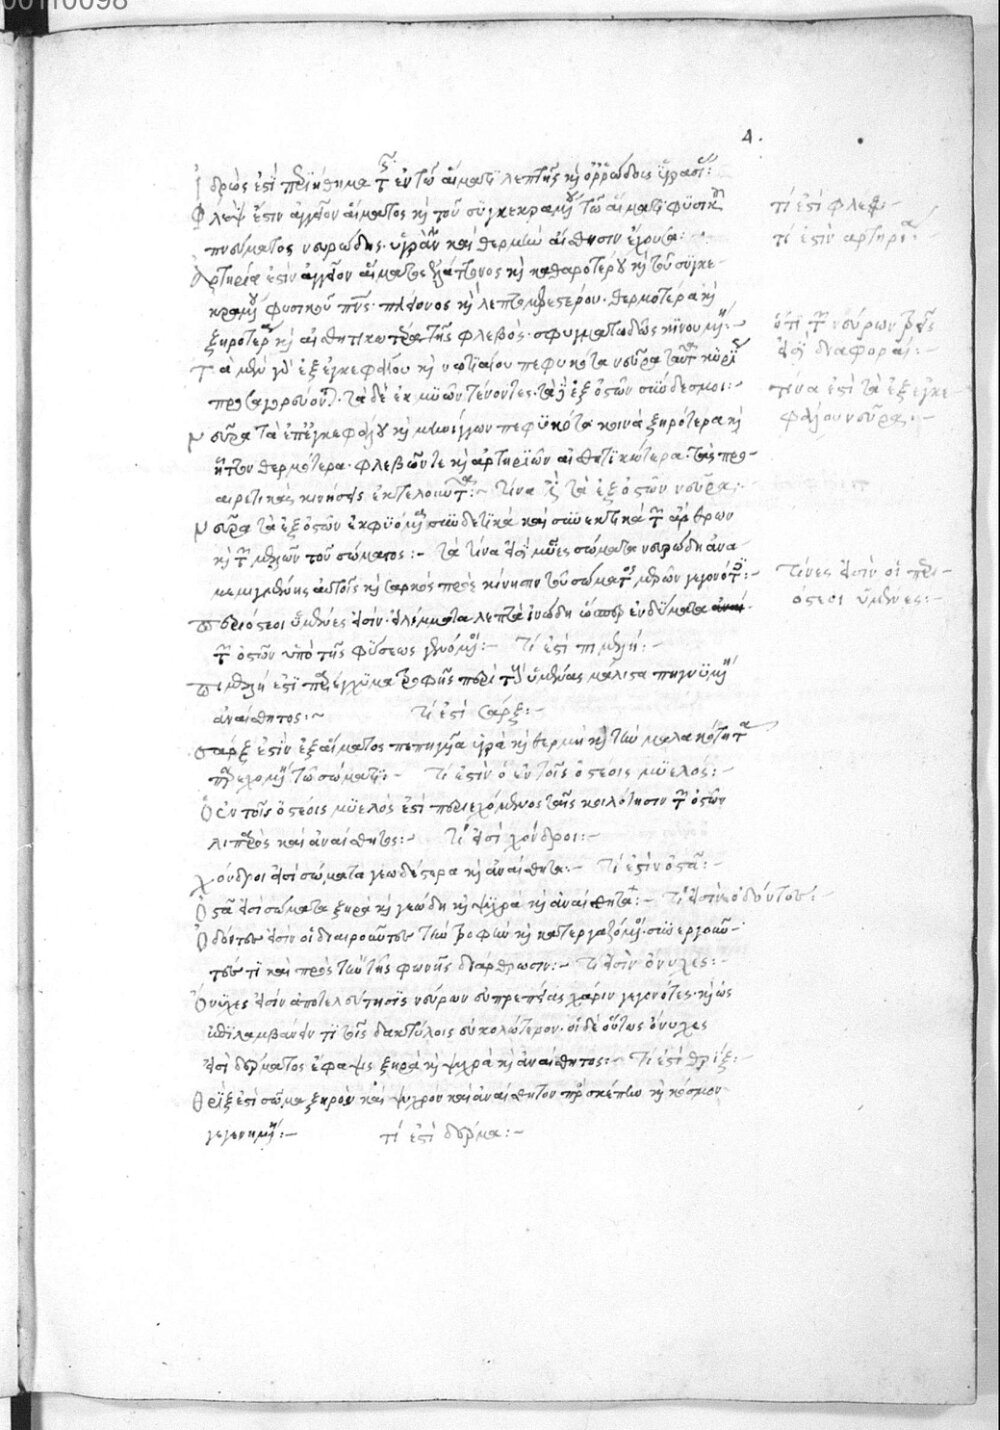 00110098
4.
Ἱδρώς ἐστι περιήθημα τῆς ἐν τῷ αἵματι λεπτῆς καὶ ὀρρώδους ὑγρασί:
Φλὲψ ἐστὶν ἀγγεῖον αἵματος καὶ τοῦ συγκεκραμένου τῷ αἵματι φυσικοῦ
πνεύματος νευρώδης. ὑγρὰν καὶ θερμὴν αἴσθησιν ἔχουσα:
τί ἐστὶ φλέψ:-
τί ἐστὶν ἀρτηρία:
Ἀρτηρία ἐστὶν ἀγγεῖον αἵματος ἐλάττονος καὶ καθαροτέρου καὶ τοῦ συγκε-
κραμένου φυσικοῦ πνς. πλέονος καὶ λεπτομερεστέρου. θερμοτέρα καὶ
ξηροτέρα καὶ αἰσθητικωτέρα τῆς φλεβός. σφυγματωδῶς κινουμένη:-
ὅτι τῶν νεύρων τρεῖς
εἰσὶ διαφοραί:-
Τὰ μὲν γὰρ ἐξ ἐγκεφάλου καὶ νωτιαίου πεφυκότα νεῦρα ταῦτα κυρί
προσαγορεύονται. τὰ δὲ ἐκ μυῶν τένοντες. τὰ δὲ ἐξ ὀστῶν σύνδεσμοι:-
τίνα ἐστὶ τὰ ἐξ ἐγκε-
φάλου νεῦρα:-
Νεῦρα τὰ ἐπ' ἐγκεφάλου καὶ μηνίγγων πεφυκότα κοινὰ ξηρότερα καὶ
ἧττον θερμότερα. φλεβῶν τε καὶ ἀρτηριῶν αἰσθητικώτερα. τὰς προ-
αιρετικὰς κινήσεις ἐκτελοῦντα:- τίνα εἰσὶ τὰ ἐξ ὀστῶν νεῦρα:-
Νεῦρα τὰ ἐξ ὀστῶν ἐκφυόμενα συνδετικὰ καὶ συνεκτικὰ τῶν ἄρθρων
καὶ τῶν μελῶν τοῦ σώματος:- τὰ τίνα εἰσὶ μύες σώματα νευρώδη ἀνα-
μεμιγμένης αὐτοῖς καὶ σαρκὸς πρὸς κίνησιν τοῦ σώματος μερῶν γεγονότα:-
τίνες εἰσὶν οἱ περι-
όστεοι ὑμένες:-
Περιόστεοι ὑμένες εἰσὶν. ἐλίμματα λεπτὰ ἰνώδη ὥσπερ ἐνδύματα
τῶν ὀστῶν ὑπὸ τῆς φύσεως γενόμενοι:- Τί ἐστὶ πιμελή:-
Πιμελή ἐστι παρέγχυμα τροφῆς περὶ τοὺς ὑμένας μάλιστα πηγνυμένη
ἀναίσθητος:~ τί ἐστὶ σάρξ:-
Σάρξ ἐστὶν ἐξ αἵματος πεπηγυῖα ὑγρὰ καὶ θερμὴ καὶ τὴν μαλακότητα
παρεχομένη τῷ σώματι:- τί ἐστὶν ὁ ἐν τοῖς ὀστέοις μυελός:-
Ὁ ἐν τοῖς ὀστέοις μυελός ἐστὶ περιεχόμενος ταῖς κοιλότησιν τῶν ὀστῶν
λιπαρὸς καὶ ἀναίσθητος:- τί εἰσὶ χόνδροι:-
Χόνδροι εἰσὶ σώματα γεωδέστερα καὶ ἀναίσθητα:- τί ἐστὶν ὀστᾶ:-
Ὀστᾶ εἰσὶ σώματα ξηρὰ καὶ γεώδη καὶ ψυχρὰ καὶ ἀναίσθητα:- τί εἰσὶν ὀδόντες:-
Ὀδόντες εἰσὶν οἱ διαιροῦντες τὴν τροφὴν καὶ κατεργαζόμενοι. συνεργοῦν-
τές τι καὶ πρὸς τὴν τῆς φωνῆς διάρθρωσιν:- τί εἰσὶν ὄνυχες:-
Ὄνυχες εἰσὶν ἀποτελεύτησις νεύρων εὐπρεπείας χάριν γεγονότες. καὶ ὡς
ἐπιλαμβάνειν τι τοῖς δακτύλοις εὐκολώτερον. οἱ δὲ οὕτως ὄνυχες
εἰσὶ δέρματος ἔφαψις ξηρὰ καὶ ψυχρὰ καὶ ἀναίσθητος:- τί ἐστὶ θρίξ:-
Θρίξ ἐστὶ σῶμα ξηρὸν καὶ ψυχρὸν καὶ ἀναίσθητον πρὸς σκέπην καὶ κόσμον
γεγενημένη:- τί ἐστὶ δέρμα:-